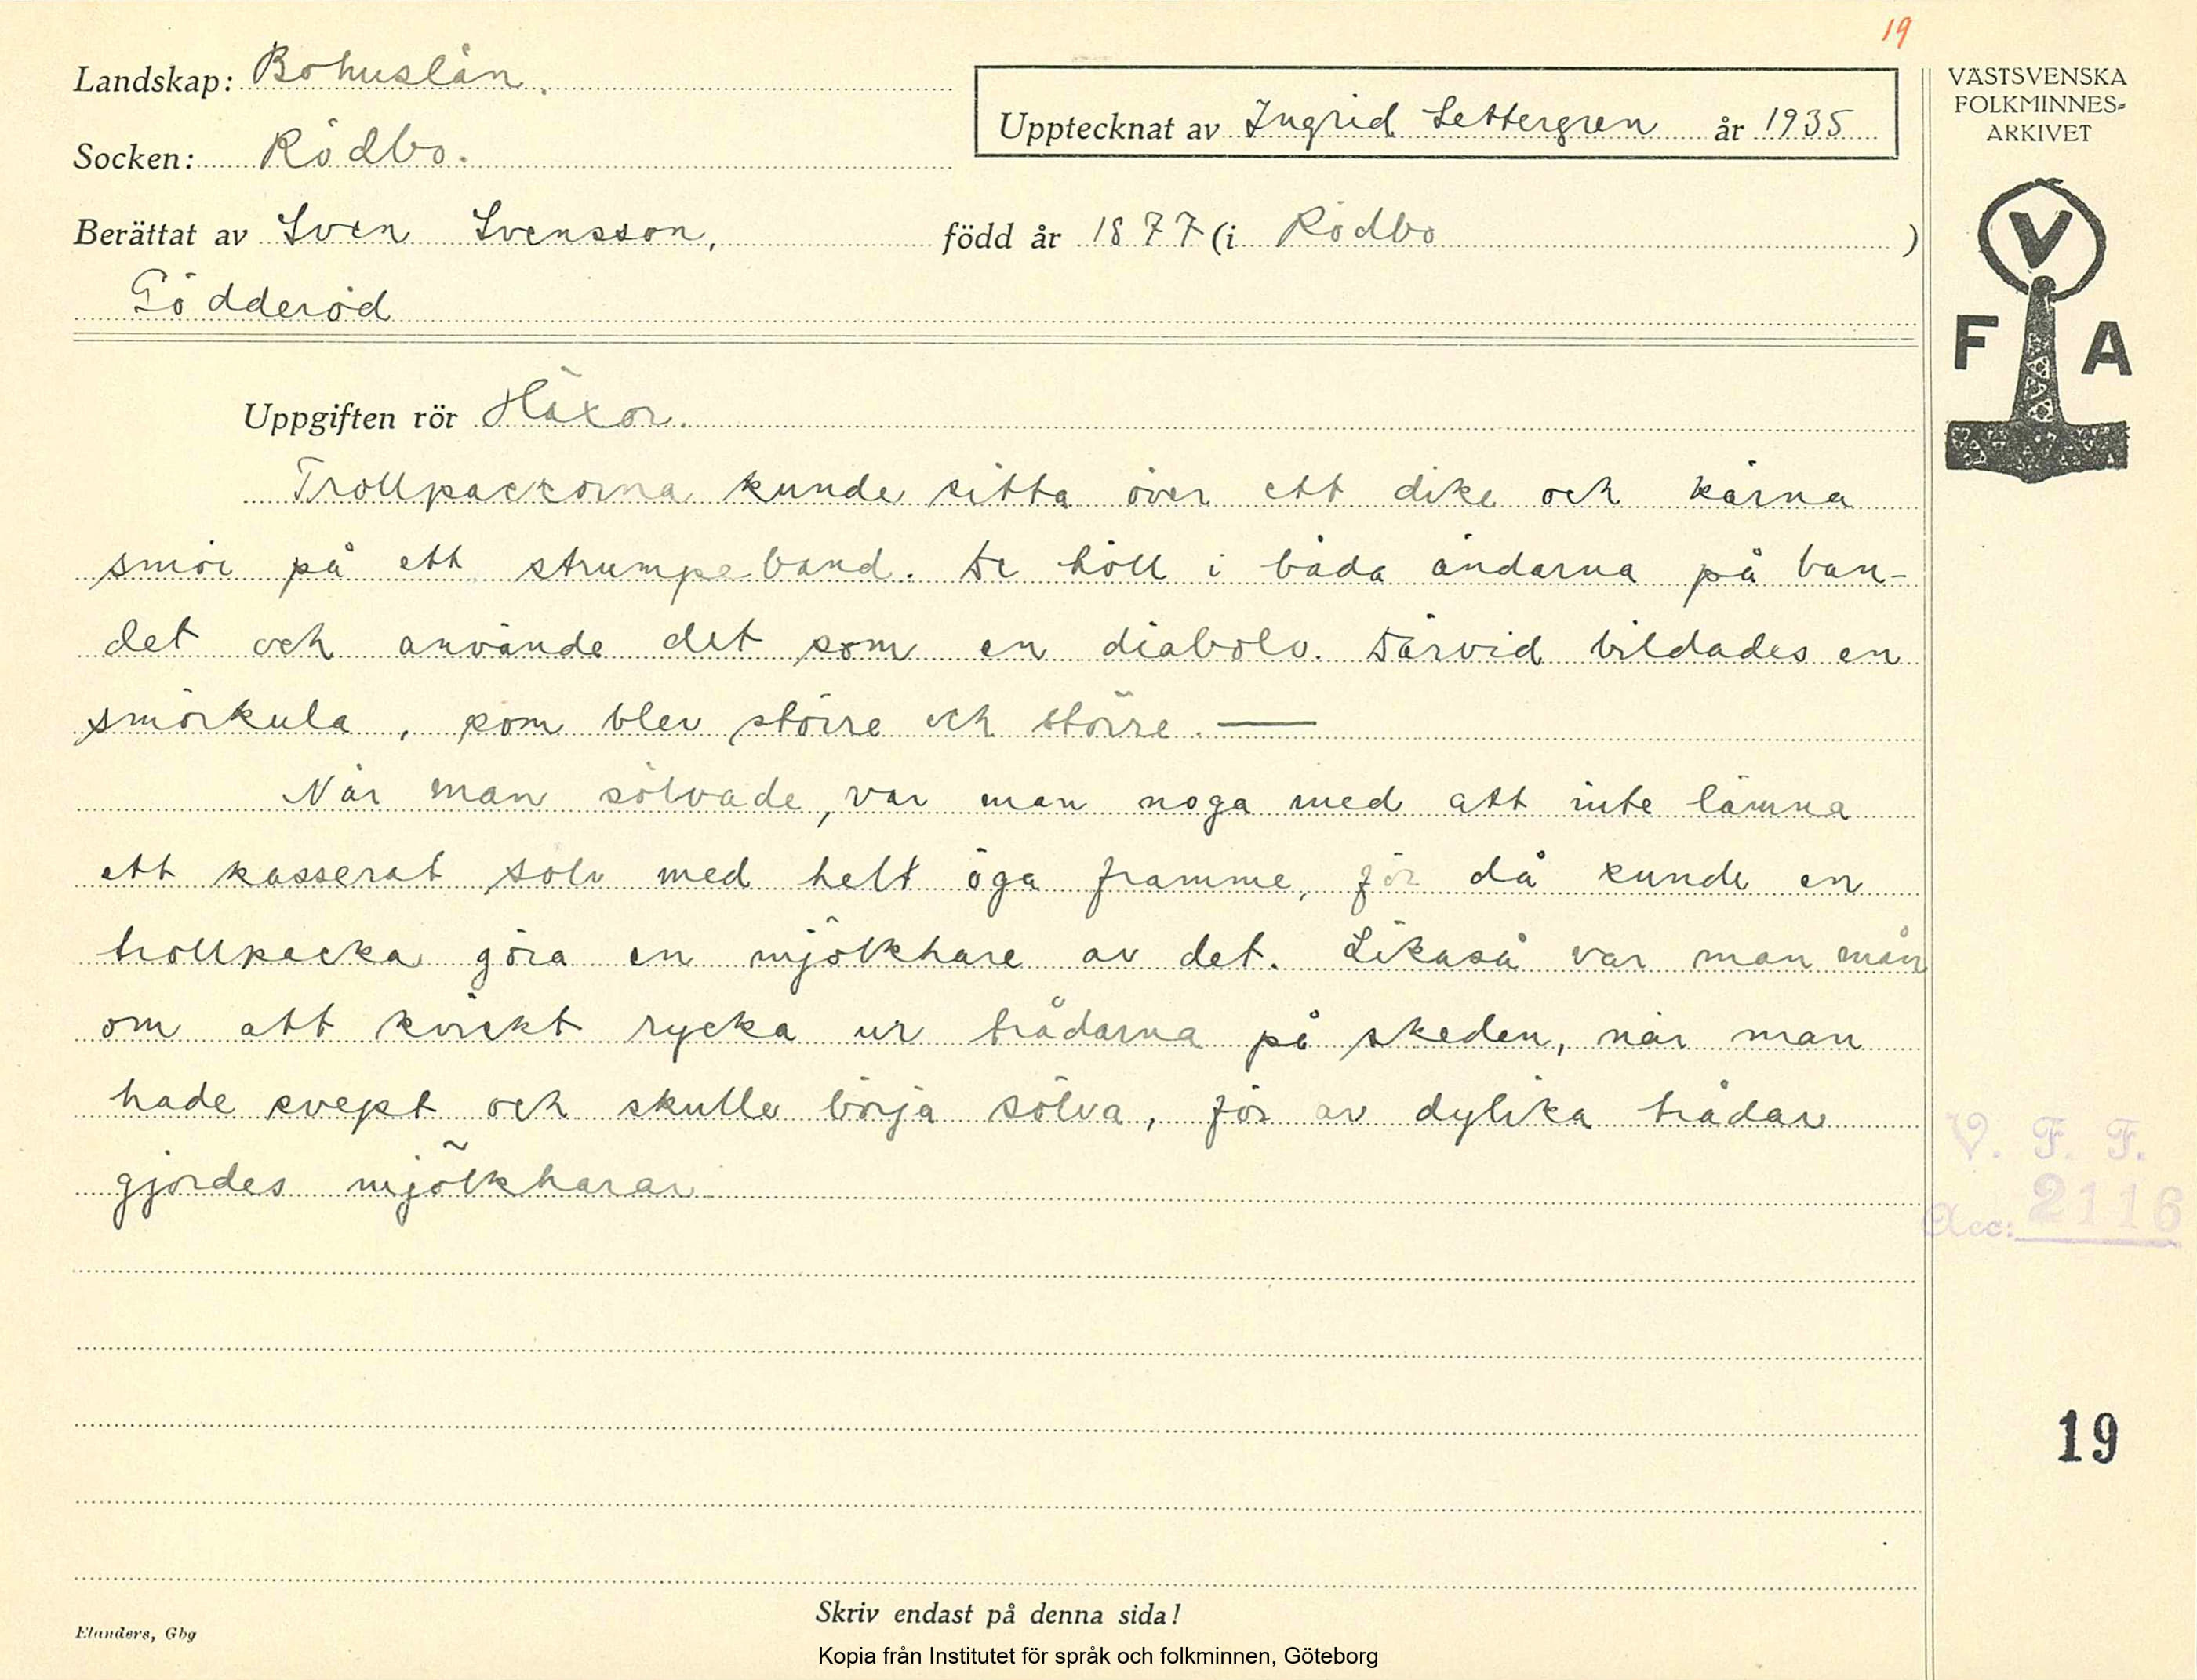 19
Landskap: Bohuslän.
Socken: Rödbo.
Upptecknat av Ingrid Settergren år 1935
VÄSTSVENSKA
FOLKMINNES-
ARKIVET
Berättat av Sven Svensson, född år 1877 (i Rödbo )
Gödderöd
V
F A
Uppgiften rör Häxor.
Trollpackorna kunde sitta över ett dike och kärna
smör på ett strumpeband. De höll i båda ändarna på ban-
det och använde det som en diabolo. Därvid bildades en
smörkula, som blev större och större. —
När man sölvade, var man noga med att inte lämna
ett kasserat sölv med helt öga framme, för då kunde en
trollpacka göra en mjölkhare av det. Likaså var man mån
om att kvickt rycka ur trådarna på skeden, när man
hade svept och skulle börja sölva, för av dylika trådar
gjordes mjölkharar.
V. F. F.
Acc: 2116
19
Skriv endast på denna sida!
Elanders, Gbg
Kopia från Institutet för språk och folkminnen, Göteborg